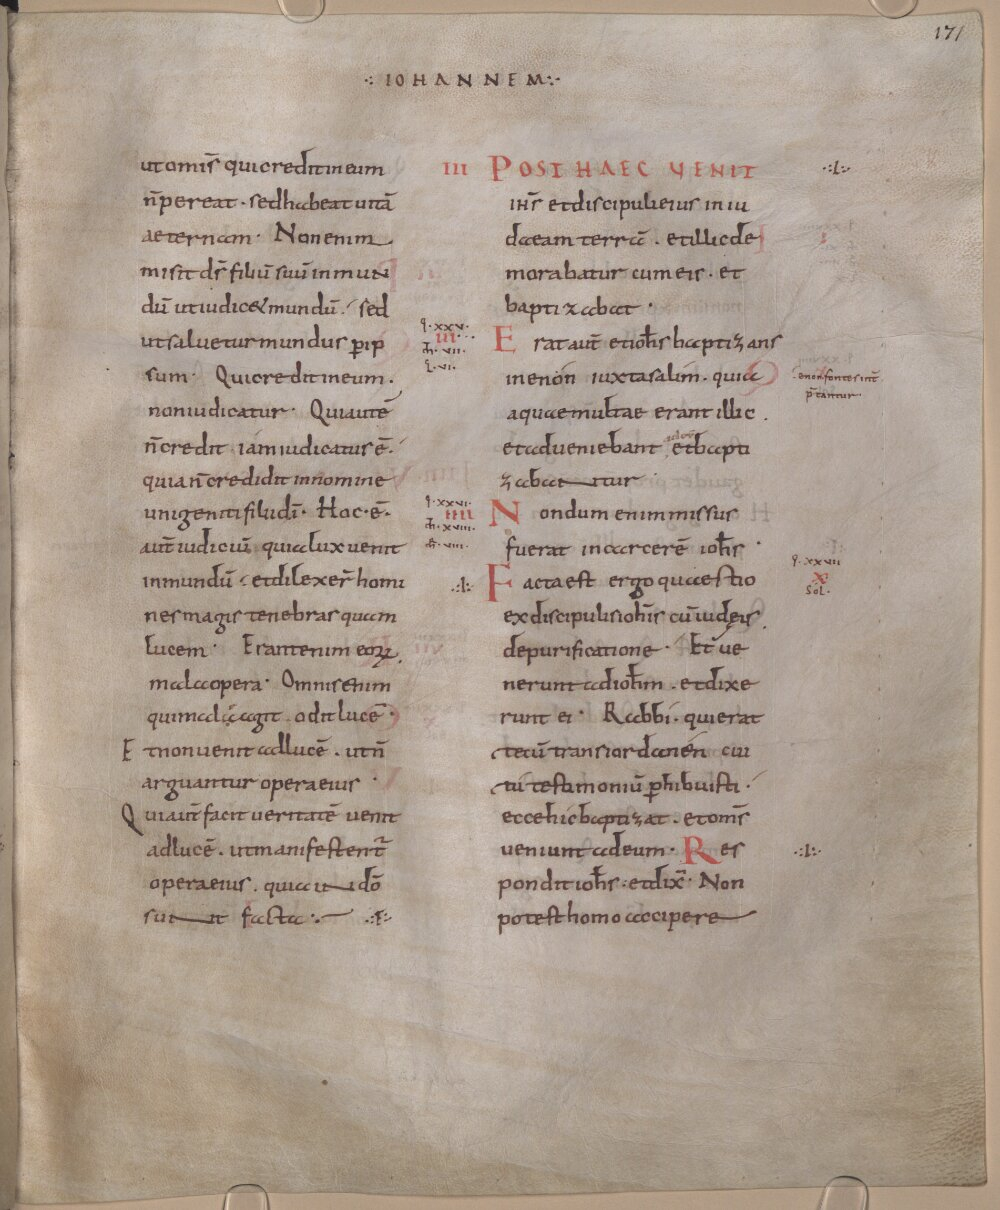 171
·: IOHANNEM :·
ut omīs qui credit in eum
n̄ pereat · sed habeat uitā
aeternam · Non enim
misit d̄s filiū suū in mun
dū ut iudicet mundū · sed
ut saluetur mundus ꝑ ip
sum · Qui credit in eum ·
non iudicatur · Qui autē
n̄ credit iam iudicatus ē ·
quia n̄ credidit in nomine
unigeniti filii dī · Hoc · ē ·
aut̄ iudiciū quia lux uenit
in mundū · et dilexer̄ homi
nes magis tenebras quam
lucem · Erant enim eoꝝ
mala opera · Omnis enim
qui mala agit · odit lucē ·
Et non uenit ad lucē · ut n̄
arguantur opera eius ·
Qui aūt facit ueritatē uenit
ad lucē · ut manifestent̄
opera eius · quia in dō
sunt facta :·
III POST HAEC VENIT
ih̄s et discipuli eius in iu
daeam terrā · et illic de
morabatur cum eis · et
baptizabat ·
q · xxv ·
III
m̄ · vii ·
l · vi ·
Erat aūt et ioh̄s baptizans
in enón iuxta salim · quia
aquae multae erant illic ·
et adueniebant et bapti
zabantur
enon fontes int̄
p̄tantur
q · xxvi ·
IIII
m̄ · xviii ·
m̄ · viii ·
Nondum enim missus
fuerat in carcerē ioh̄s ·
Facta est ergo quaestio
ex discipulis ioh̄is cū iudęis ·
de purificatione · Et ue
nerunt ad ioh̄m · et dixe
runt ei · Rabbi · qui erat
tecū trans iordanén cui
tu testimoniū ꝑhibuisti ·
ecce hic baptizat · et omīs
ueniunt ad eum · Res
pondit ioh̄s · et dix̄ · Non
potest homo accipere
q · xxvii
x
Sol ·